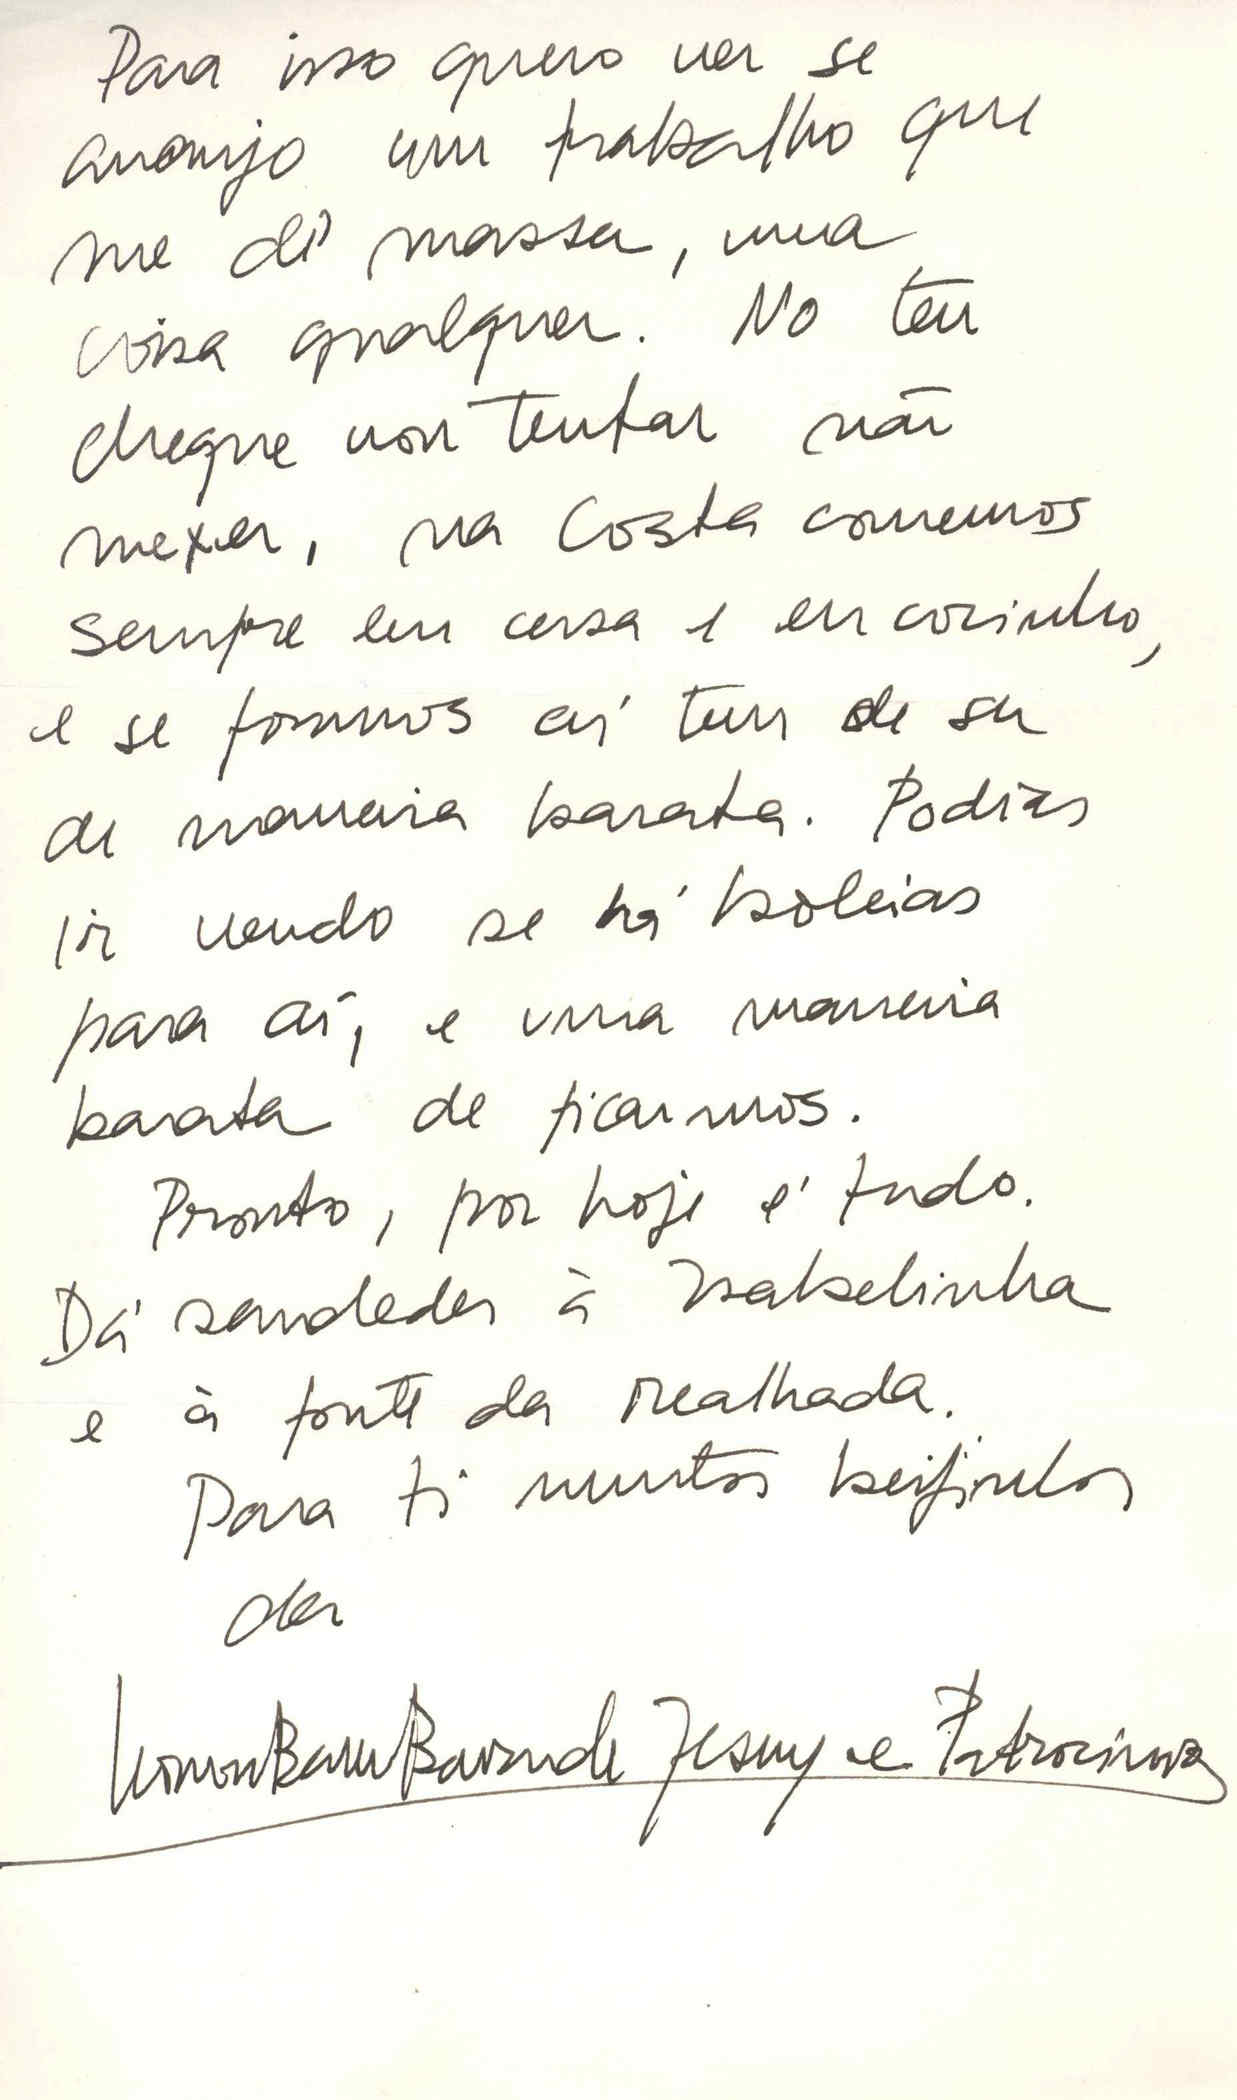 Para isso quero ver se
arranjo um trabalho que
me dê massa, uma
coisa qualquer. No teu
cheque vou tentar não
mexer, na Costa comemos
sempre em casa e eu cozinho,
e se formos aí tem de ser
de maneira barata. Podias
ir vendo se há boleias
para aí, e uma maneira
barata de ficarmos.
Pronto, por hoje é tudo.
Dá saudades à Isabelinha
e à fonte da Mealhada.
Para ti muitos beijinhos
da
Jesus e